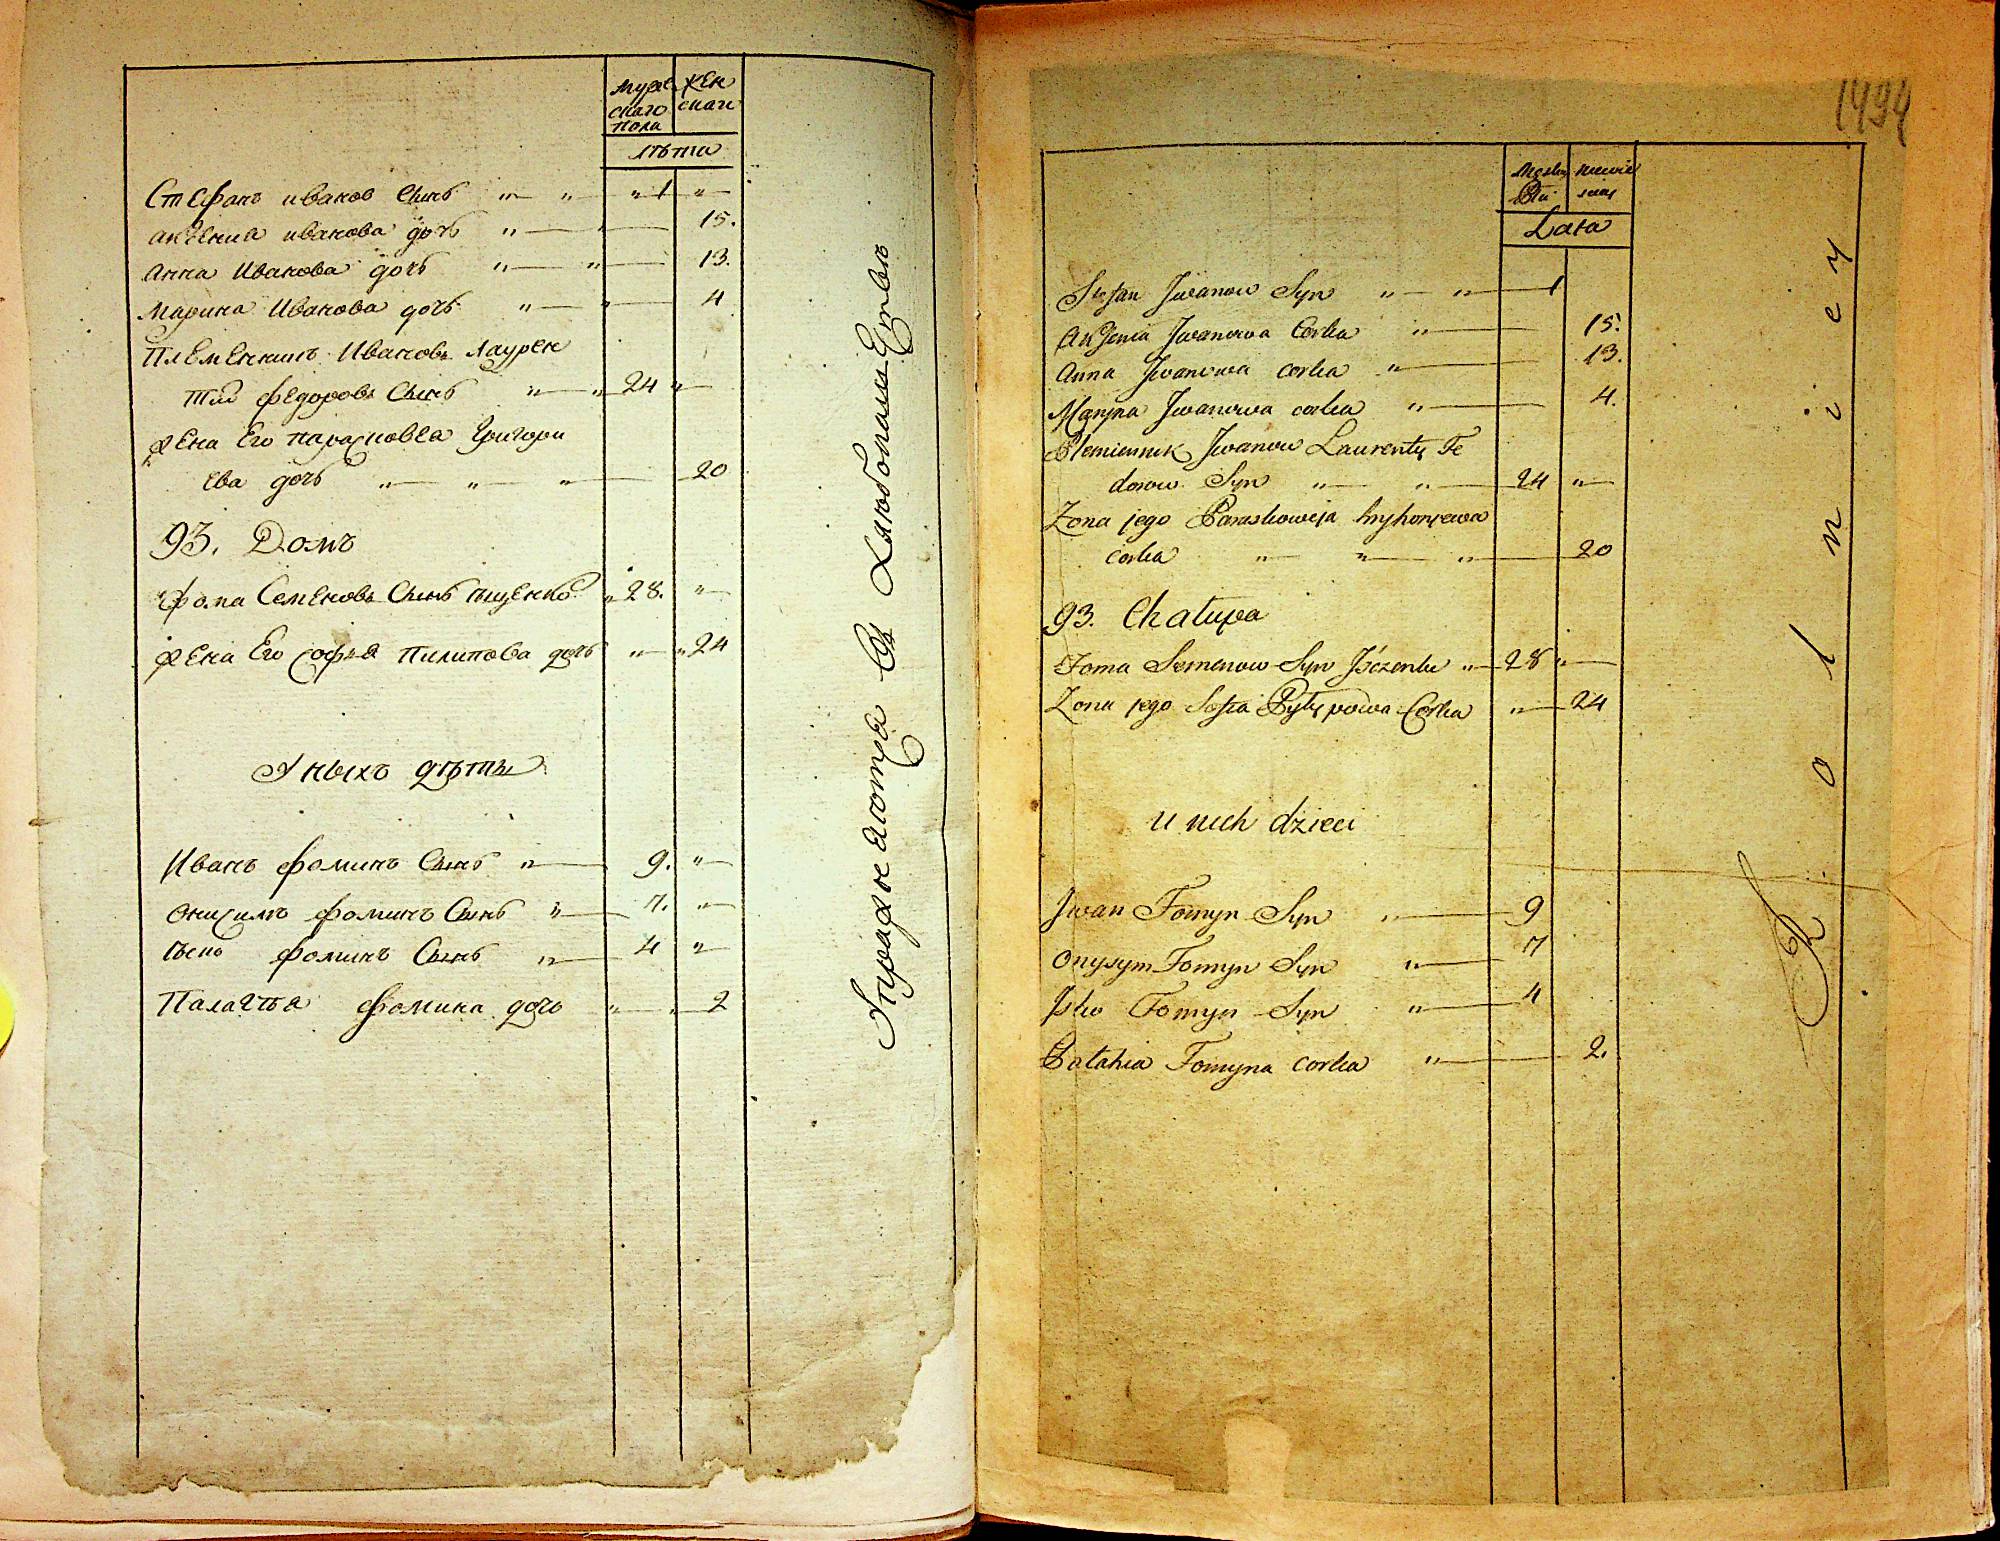 Мужескаго пола
Женскаго
лѣта
Стефанъ иванов Сынъ " " " 1 "
аксения иванова дочь " 15.
Анна Иванова дочь " " 13.
Марина Иванова дочь " " 4
Племенникъ Ивановъ Лаурен
тий федоровъ Сынъ " " 24 "
жена Его парасковея Григори
ева дочь " " " 20
93. Домъ
фома Семеновъ Сынъ " 28. "
жена Его софья пилипова дочь " " 24
У ныхъ дѣты
Иванъ фоминъ Сынъ " 9. "
онисимъ фоминъ Сынъ " 7. "
фоминъ Сынъ " 4 "
Палагѣя фомина дочь " " 2
1494
niewie
Lata
Stefan Jwanow Syn " " 1
Jwanowa Corka " 15.
Anna Jwanowa corka " 13.
Maryna Jwanowa corka " 4.
Plemiennik Jwanow Laurenty Fe
dorow Syn " " 24 "
Zona jego Paraskowija hryhoryewa
corka " " " 20
93. Chatupa
Foma Semenow Syn Jsczenko " 28 "
Zona jego Sofia Pylypowa Corka " 24
u nich dzieci
Jwan Fomyn Syn " 9
Onysym Fomyn Syn " 7
Jsko Fomyn Syn " 4
Palahia Fomyna corka " 2.
R o l n i c y